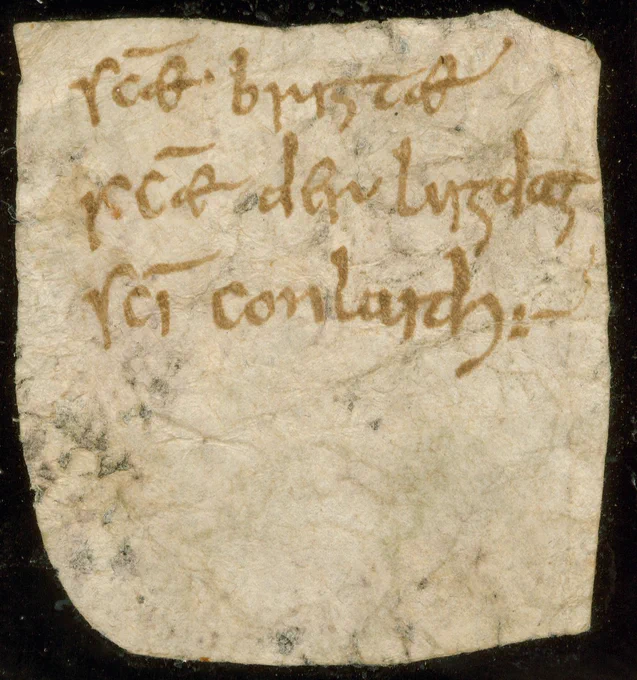 sc̄æ · brigtæ
sc̄æ dar lugdag
sc̄i conlaich:~